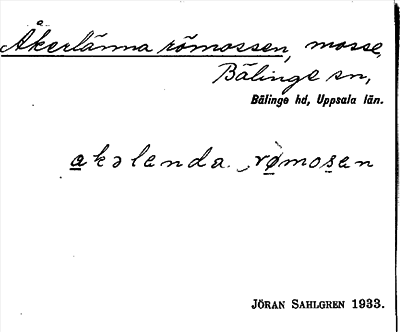 Åkerlänna römossen, mosse,
Bälinge sn,
Bälinge hd, Uppsala län.
akəlenda. rømosen
JÖRAN SAHLGREN 1933.